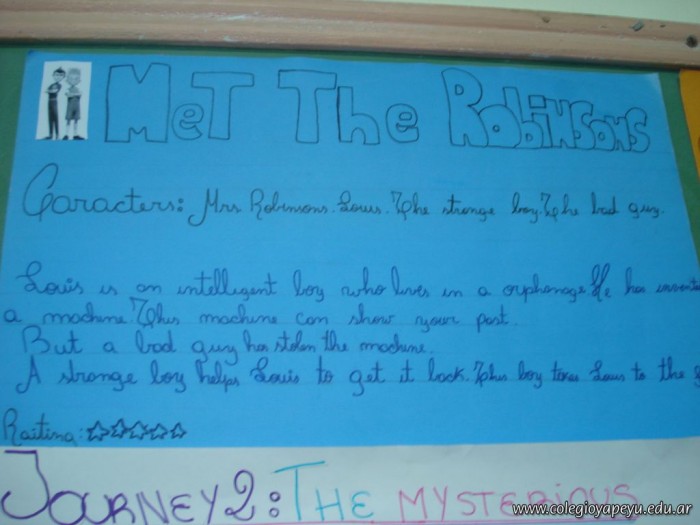 MeT The Robinsons
Caracters: Mrs. Robinsons. Louis. The strange boy. The bad guy.
Louis is an intelligent boy who lives in a orphanage He has
a machine. This machine can show your past.
But a bad guy has stolen the machine.
A strange boy helps Louis to get it back. This boy takes Louis to the
Raiting:
JOURNEY 2: THE MYSTERIOUS
www.colegioyapeyu.edu.ar